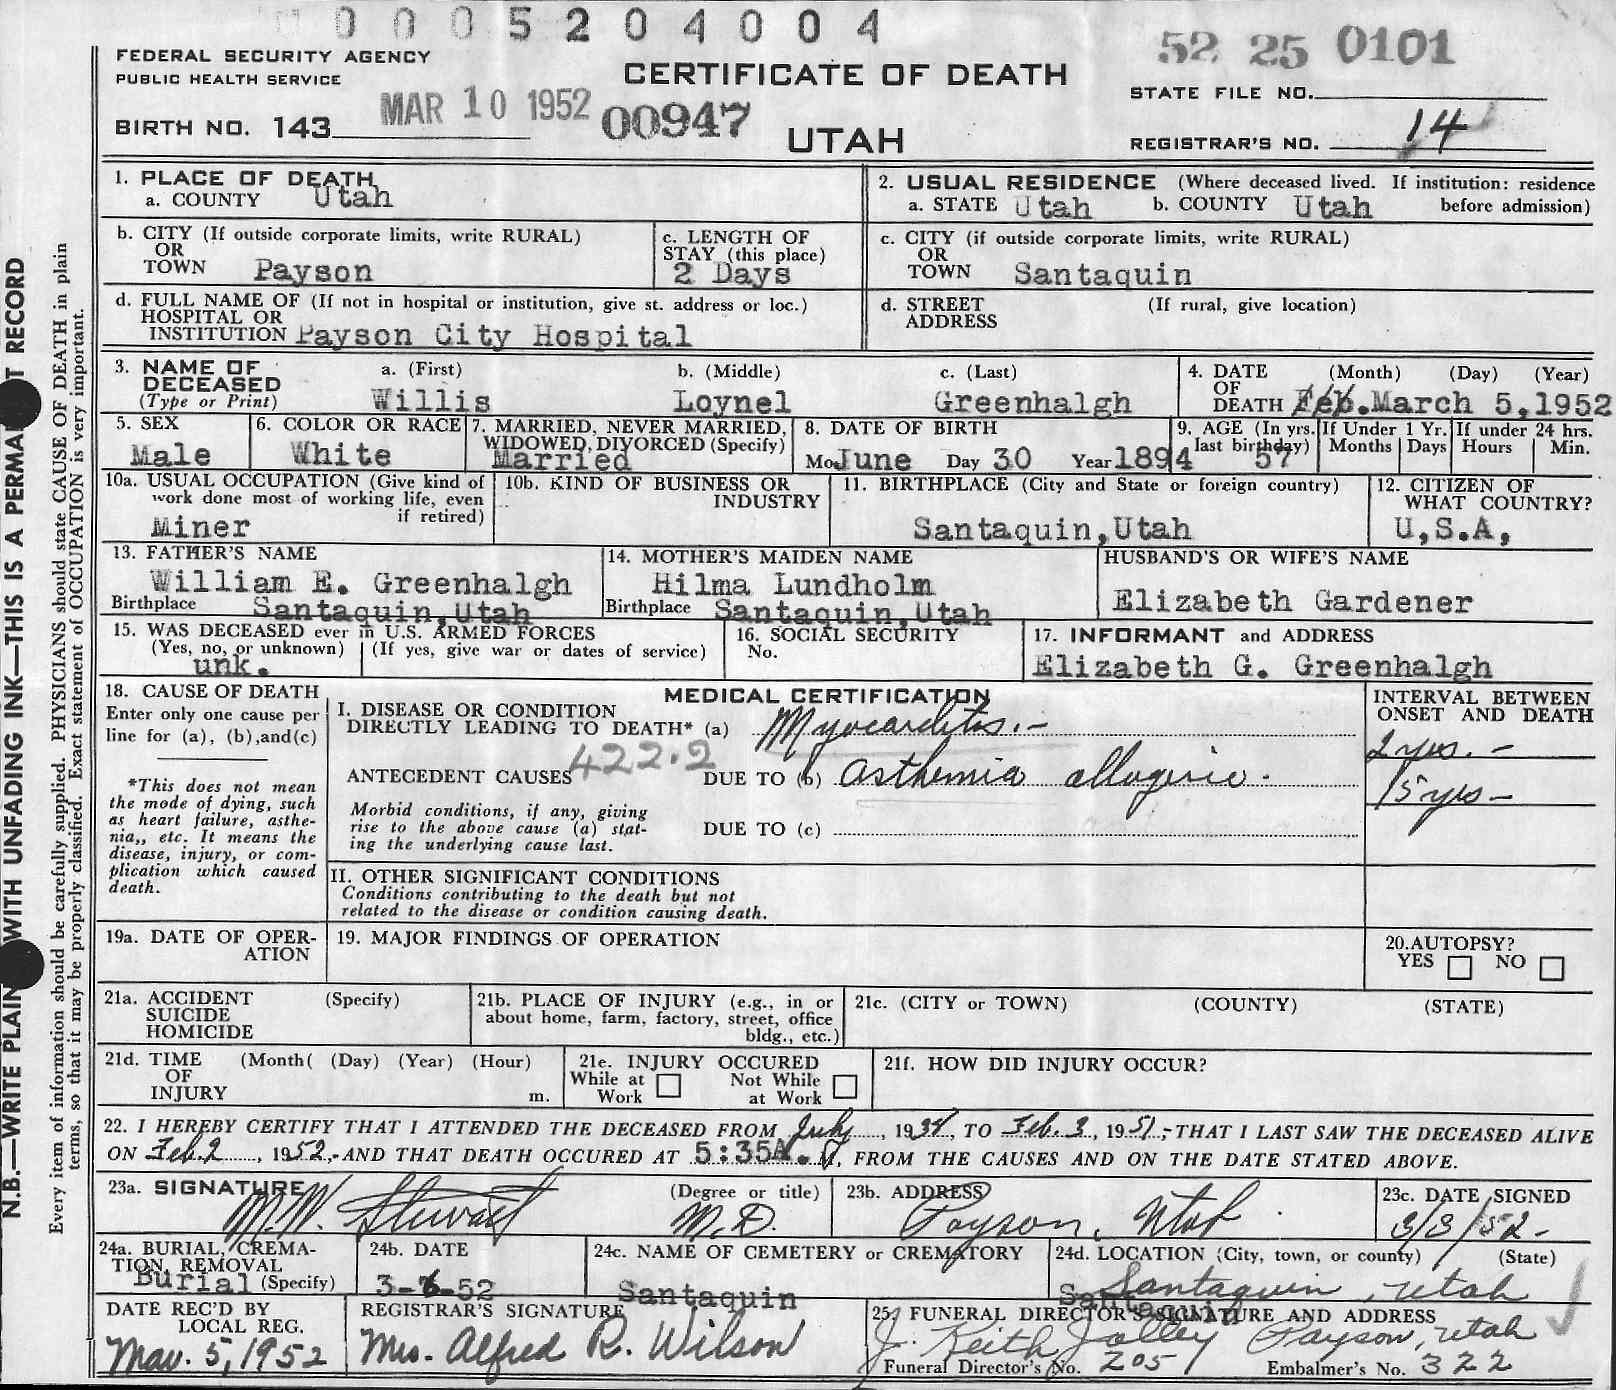 0 0 0 5 2 0 4 0 0 4
FEDERAL SECURITY AGENCY
PUBLIC HEALTH SERVICE
CERTIFICATE OF DEATH
52 25 0101
STATE FILE NO.
MAR 10 1952
00947
BIRTH NO. 143
UTAH
REGISTRAR'S NO. 14
1. PLACE OF DEATH
a. COUNTY Utah
2. USUAL RESIDENCE (Where deceased lived. If institution: residence
a. STATE Utah b. COUNTY Utah before admission)
b. CITY (If outside corporate limits, write RURAL)
OR
TOWN Payson
c. LENGTH OF
STAY (this place)
2 Days
c. CITY (if outside corporate limits, write RURAL)
OR
TOWN Santaquin
d. FULL NAME OF (If not in hospital or institution, give st. address or loc.)
HOSPITAL OR
INSTITUTION Payson City Hospital
d. STREET (If rural, give location)
ADDRESS
3. NAME OF
DECEASED
(Type or Print)
a. (First)
Willis
b. (Middle)
Loynel
c. (Last)
Greenhalgh
4. DATE (Month) (Day) (Year)
OF
DEATH Feb. March 5, 1952
5. SEX
Male
6. COLOR OR RACE
White
7. MARRIED, NEVER MARRIED,
WIDOWED, DIVORCED (Specify)
Married
8. DATE OF BIRTH
Mo June Day 30 Year 1894
9. AGE (In yrs.
last birthday)
57
If Under 1 Yr.
Months Days
If under 24 hrs.
Hours Min.
10a. USUAL OCCUPATION (Give kind of
work done most of working life, even
if retired)
Miner
10b. KIND OF BUSINESS OR
INDUSTRY
11. BIRTHPLACE (City and State or foreign country)
Santaquin, Utah
12. CITIZEN OF
WHAT COUNTRY?
U,S.A,
13. FATHER'S NAME
William E. Greenhalgh
Birthplace Santaquin, Utah
14. MOTHER'S MAIDEN NAME
Hilma Lundholm
Birthplace Santaquin, Utah
HUSBAND'S OR WIFE'S NAME
Elizabeth Gardener
15. WAS DECEASED ever in U.S. ARMED FORCES
(Yes, no, or unknown) (If yes, give war or dates of service)
unk.
16. SOCIAL SECURITY
No.
17. INFORMANT and ADDRESS
Elizabeth G. Greenhalgh
18. CAUSE OF DEATH
Enter only one cause per
line for (a), (b), and (c)
*This does not mean
the mode of dying, such
as heart failure, asthe-
nia,, etc. It means the
disease, injury, or com-
plication which caused
death.
MEDICAL CERTIFICATION
I. DISEASE OR CONDITION
DIRECTLY LEADING TO DEATH* (a) Myocarditis.-
422.2
ANTECEDENT CAUSES DUE TO (b) Asthemia allogeric.
Morbid conditions, if any, giving
rise to the above cause (a) stat-
ing the underlying cause last.
DUE TO (c)
INTERVAL BETWEEN
ONSET AND DEATH
2 yrs. -
15 yrs -
II. OTHER SIGNIFICANT CONDITIONS
Conditions contributing to the death but not
related to the disease or condition causing death.
19a. DATE OF OPER-
ATION
19. MAJOR FINDINGS OF OPERATION
20. AUTOPSY?
YES NO
21a. ACCIDENT (Specify)
SUICIDE
HOMICIDE
21b. PLACE OF INJURY (e.g., in or
about home, farm, factory, street, office
bldg., etc.)
21c. (CITY or TOWN) (COUNTY) (STATE)
21d. TIME (Month( (Day) (Year) (Hour)
OF
INJURY m.
21e. INJURY OCCURED
While at Work
Not While at Work
21f. HOW DID INJURY OCCUR?
22. I HEREBY CERTIFY THAT I ATTENDED THE DECEASED FROM July, 1938, TO Feb. 3, 1951,-THAT I LAST SAW THE DECEASED ALIVE
ON Feb. 2, 1952,-AND THAT DEATH OCCURED AT 5:35A.M, FROM THE CAUSES AND ON THE DATE STATED ABOVE.
23a. SIGNATURE (Degree or title)
M.W. Stewart M.D.
23b. ADDRESS
Payson, Utah
23c. DATE SIGNED
3/3/52-
24a. BURIAL, CREMA-
TION, REMOVAL
Burial (Specify)
24b. DATE
3-6-52
24c. NAME OF CEMETERY or CREMATORY
Santaquin
24d. LOCATION (City, town, or county) (State)
Santaquin, Utah
Santaquin
DATE REC'D BY
LOCAL REG.
Mar. 5, 1952
REGISTRAR'S SIGNATURE
Mrs. Alfred R. Wilson
25. FUNERAL DIRECTOR'S SIGNATURE AND ADDRESS
J. Keith Jolley Payson, Utah
Funeral Director's No. 205 Embalmer's No. 322
N.B.—WRITE PLAIN WITH UNFADING INK—THIS IS A PERMA T RECORD
Every item of information should be carefully supplied. PHYSICIANS should state CAUSE OF DEATH in plain
terms, so that it may be properly classified. Exact statement of OCCUPATION is very important.